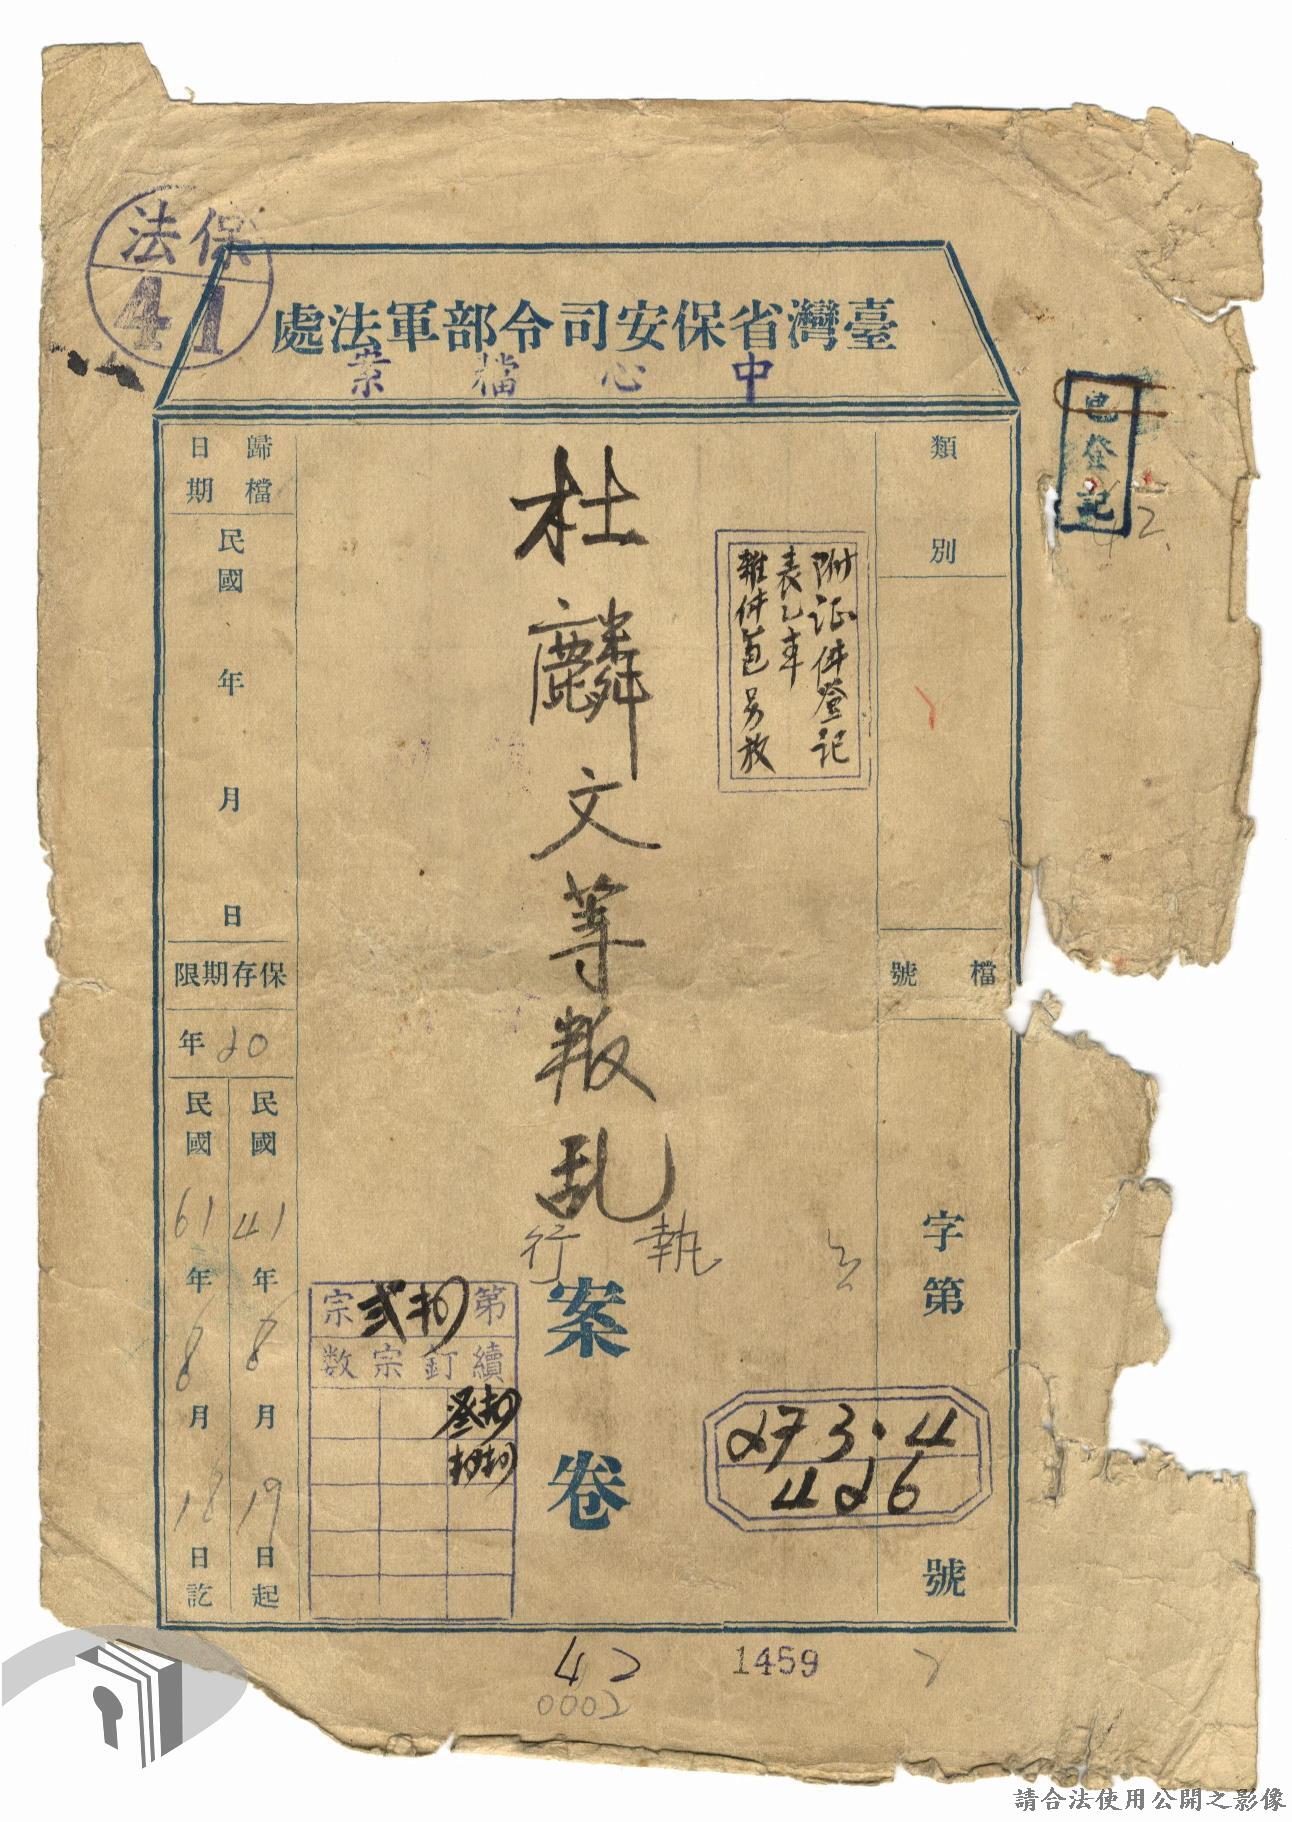 保法
41
臺灣省保安司令部軍法處
中心檔案
已登記
類別
附证件登记
表乙本
雜件邑另放
杜麟文等叛乱
執行
案卷
檔號
字第
273.4
426
號
歸檔日期
民國 年 月 日
保存期限
20年
民國41年8月19日起
民國61年8月18日訖
第 宗
續釘宗数
42
1459
0002
請合法使用公開之影像